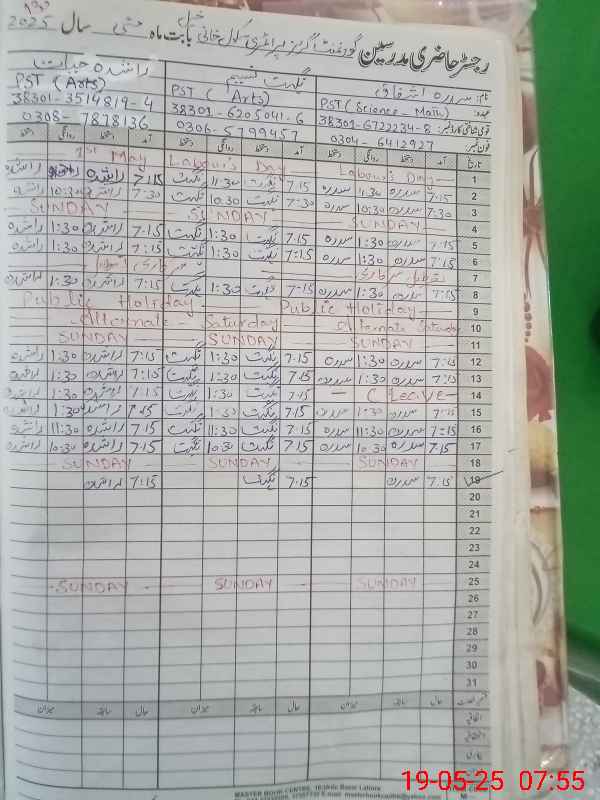 رجسٹر حاضری مدرسین گورنمنٹ گرلز پرائمری سکول بابت ماہ مئی سال 2025
نام: سدرہ اشفاق نگہت نسیم راشدہ
عہدہ: PST (Science - Math) PST (Arts) PST (Arts)
قومی شناختی کارڈ نمبر: 38301-6722234-8 38301-6205041-6 38301-3514819-4
فون نمبر: 0304-6412927 0306-5799457 0308-7878136
تاریخ آمد دستخط روانگی دستخط آمد دستخط روانگی دستخط آمد دستخط روانگی دستخط
1 1st May Labour's Day Labour's Day
2 7:15 سدرہ 11:30 سدرہ 7:15 نگہت 11:30 نگہت 7:15 راشدہ
3 7:30 سدرہ 10:30 سدرہ 7:30 نگہت 10:30 نگہت 7:30 راشدہ 10:30 راشدہ
4 SUNDAY SUNDAY SUNDAY
5 7:15 سدرہ 1:30 سدرہ 7:15 نگہت 1:30 نگہت 7:15 راشدہ 1:30 راشدہ
6 7:15 سدرہ 1:30 سدرہ 7:15 نگہت 1:30 نگہت 7:15 راشدہ 1:30 راشدہ
7
8 7:15 سدرہ 1:30 سدرہ 7:15 نگہت 1:30 نگہت 7:15 راشدہ 1:30 راشدہ
9 Public Holiday Public Holiday
10 Alternate Saturday Alternate Saturday
11 SUNDAY SUNDAY SUNDAY
12 7:15 سدرہ 1:30 سدرہ 7:15 نگہت 1:30 نگہت 7:15 راشدہ 1:30 راشدہ
13 7:15 سدرہ 1:30 سدرہ 7:15 نگہت 1:30 نگہت 7:15 راشدہ 1:30 راشدہ
14 C Leave 7:15 نگہت 1:30 نگہت 7:15 راشدہ 1:30 راشدہ
15 7:15 سدرہ 1:30 سدرہ 7:15 نگہت 1:30 نگہت 7:15 راشدہ 1:30 راشدہ
16 7:15 سدرہ 11:30 سدرہ 7:15 نگہت 11:30 نگہت 7:15 راشدہ 11:30 راشدہ
17 7:15 سدرہ 10:30 سدرہ 7:15 نگہت 10:30 نگہت 7:15 راشدہ 10:30 راشدہ
18 SUNDAY SUNDAY SUNDAY
19 7:15 سدرہ 7:15 نگہت 7:15 راشدہ
20
21
22
23
24
25 SUNDAY SUNDAY SUNDAY
26
27
28
29
30
31
حال سابقہ میزان حال سابقہ میزان حال سابقہ میزان
اتفاقی
MASTER BOOK CENTRE, Urdu Bazar Lahore
19-05-25 07:55